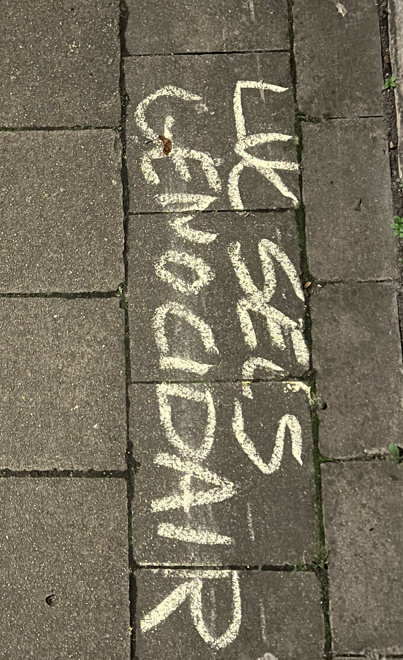 LUC SELS
GENOCIDAIR